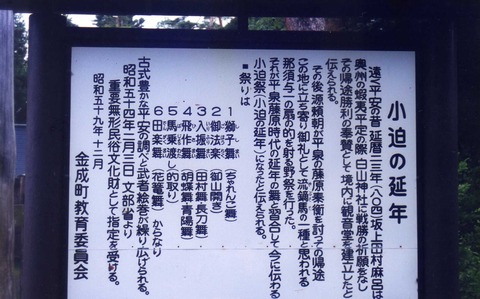 小迫の延年
遠く平安の昔 延暦二三年(八〇四)坂上田村麻呂は
奥州の蝦夷平定の際 白山神社に戦勝の祈願をなし
その帰途勝利の奉賛として境内に観音堂を建立したと
伝えられる。
その後源頼朝が平泉の藤原泰衡を討っての帰途
この地に立ち寄り御礼として流鏑馬の一種と思われる
那須与一の扇の的を射る野祭を行った。
それが平泉藤原時代の延年の舞と習合して今に伝わる
小迫祭(小迫の延年)になったと伝えられる。
■祭りは
1 獅子舞(ちらんこ舞)
2 御法楽(御山開き)
3 入振舞(田村舞長刀舞)
4 飛作舞(胡蝶舞青陽舞)
5 馬乗渡し(的取り)
6 田楽舞(花篭舞)からなり
古式豊かな平安の調べと武者絵巻が繰り広げられる。
昭和五十四年二月三日 文部省より
重要無形民俗文化財として指定を受ける。
昭和五十九年十二月
金成町教育委員会